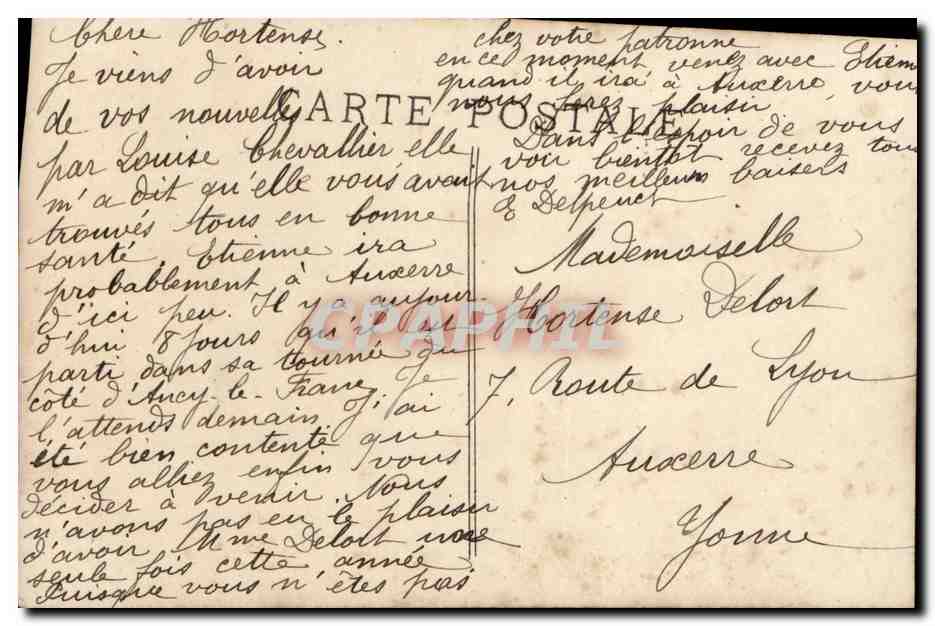 Chère Hortense,
Je viens d'avoir
de vos nouvelles
par Louise Chevallier elle
m'a dit qu'elle vous avait
trouvés tous en bonne
santé. Etienne ira
probablement à Auxerre
d'ici peu. Il y a aujour
d'hui 8 jours qu'il est
parti dans sa tournée du
côté d'Ancy-le-Franc, Je
l'attends demain J'ai
été bien contente que
vous alliez enfin vous
décider à venir. Nous
n'avons pas eu le plaisir
d'avoir Mme Delort une
seule fois cette année
Puisque vous n'êtes pas
chez votre patronne
en ce moment venez avec Etienne
quand il ira à Auxerre, vous
nous ferez plaisir
Dans l'espoir de vous
voir bientôt recevez tous
nos meilleurs baisers
E Delpeuch
CARTE POSTALE
Mademoiselle
Hortense Delort
7, Route de Lyon
Auxerre
Yonne
CPAPHIL.com